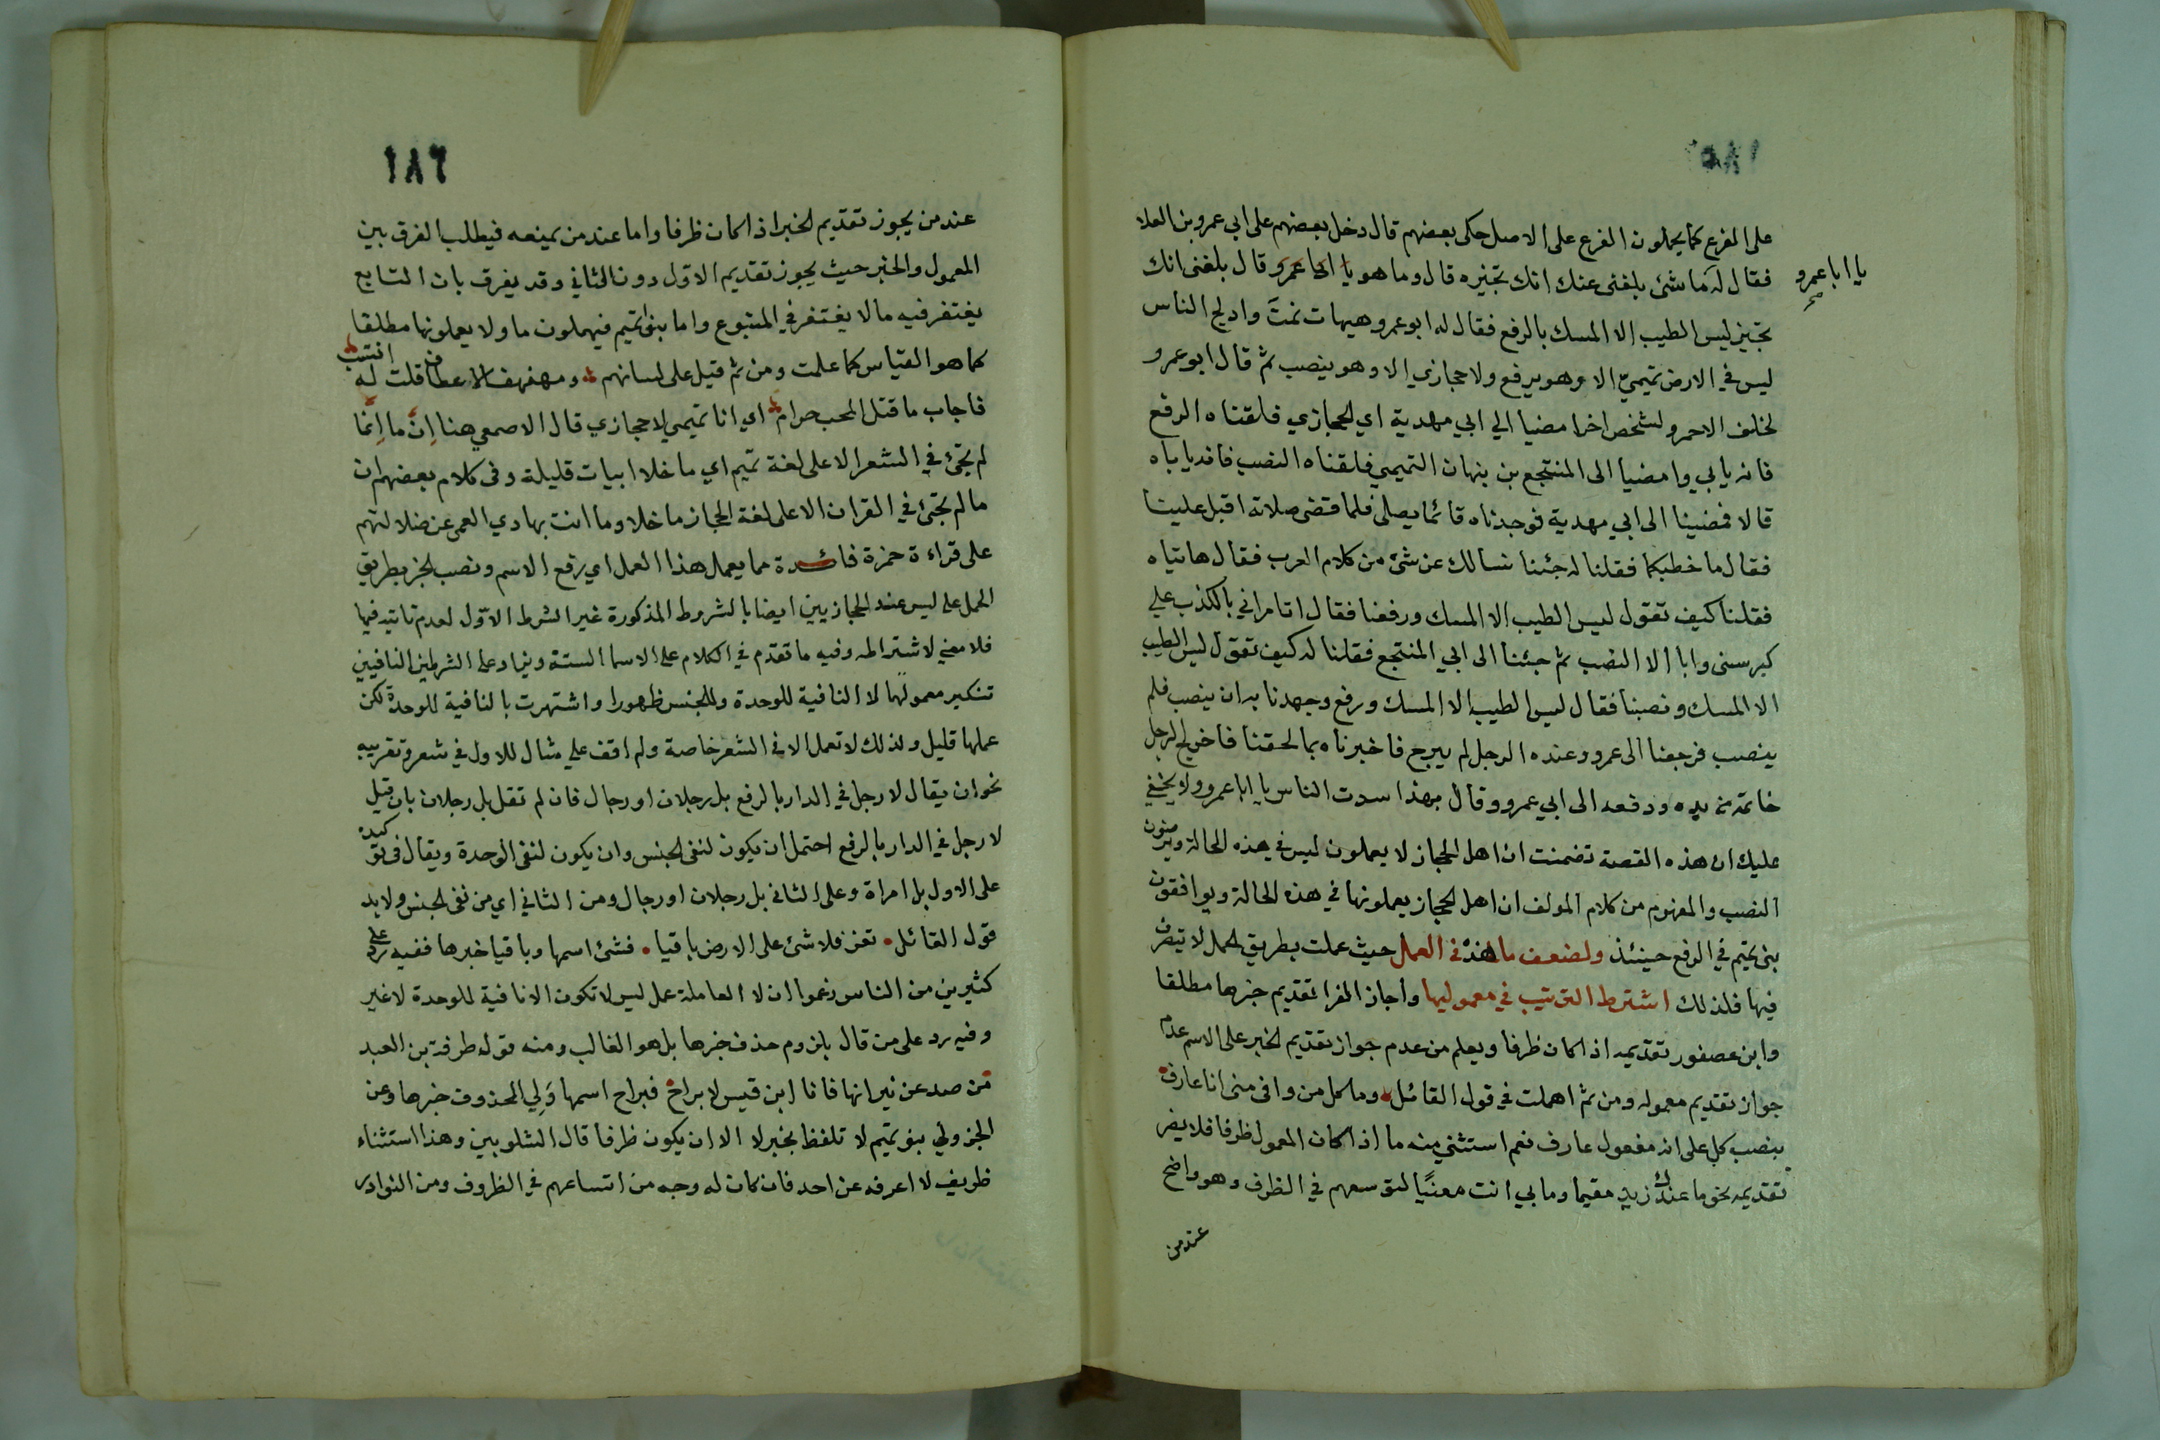 ١٨٥
على الفرع كما يحملون الفرع على الاصل حكى بعضهم قال دخل بعضهم على ابي عمرو بن العلا
فقال له ما شئ بلغنى عنك انك تجيزه قال وما هو يا ابا عمرو قال بلغنى انك
يا ابا عمرو صح
تجيز ليس الطيب الا المسك بالرفع فقال له ابو عمرو هيهات نمتَ وادلج الناس
ليس في الارض تميميّ الا وهو يرفع ولا حجازي الا وهو ينصب ثم قال ابو عمرو
لخلف الاحمر ولشخص اخر امضيا الي ابي مهدية اي الحجازي فلقناه الرفع
فانه يابي وامضيا الى المنتجع بن بنهان التميمي فلقناه النصب فانه ياباه
قالا فمضينا الى ابي مهدية فوجدناه قائما يصلى فلما قضى صلاته اقبل علينا
فقال ما خطبكما فقلنا له جئنا نسالك عن شئ من كلام العرب فقال هاتياه
فقلنا كيف تقول ليس الطيب الا المسك ورفعنا فقال اتامراني بالكذب علي
كبر سنى وابا الا النصب ثم جئنا الى ابي المنتجع فقلنا له كيف تقول ليس الطيب
الا المسك ونصبنا فقال ليس الطيب الا المسك ورفع وجهدنا به ان ينصب فلم
ينصب فرجعنا الى عمرو وعنده الرجل لم يبرح فاخبرناه بما لحقنا فاخرج الرجل
خاتمه من يده ودفعه الى ابي عمرو وقال بهذا سدت الناس يا ابا عمرو ولا يخفي
عليك ان هذه القصة تضمنت ان اهل الحجاز لا يعملون ليس في هذه الحالة ويرضون
النصب والمفهوم من كلام المولف ان اهل الحجاز يعملونها في هذه الحالة ويوافقون
بنى تميم في الرفع حينئذ ولضعف ما هذه في العمل حيث عملت بطريق الحمل لا يتصرف
فيها فلذلك اشترط الترتيب في معموليها واجاز الفرا تقديم خبرها مطلقا
وابن عصفور تقديمه اذا كان ظرفا ويعلم من عدم جواز تقديم الخبر على الاسم عدم
جواز تقديم معموله ومن ثم اهملت في قول القائل وما كل من وافى منى انا عارف
بنصب كل على انه مفعول عارف نعم استثني منه ما اذا كان المعمول ظرفا فلا يضر
تقديمه نحو ما عندك زيد مقيما وما بي انت معنيًا لتوسعهم في الظرف وهو واضح
عند من
١٨٦
عند من يجوز تقديم الخبر اذا كان ظرفا واما عند من يمنعه فيطلب الفرق بين
المعمول والخبر حيث يجوز تقديم الاول دون الثاني وقد يفرق بان التابع
يغتفر فيه ما لا يغتفر في المتبوع واما بنو تميم فيهملون ما ولا يعملونها مطلقا
كما هو القياس كما علمت ومن ثم قيل على لسانهم ومهفهف الاعطاف قلت له انتسب
فاجاب ما قتل المحب حرام اي انا تميمي لا حجازي قال الاصمعي هنا اِنّ ما اِنما
لم تجئ في الشعر الا على لغة تميم اي ما خلا ابيات قليلة وفى كلام بعضهم ان
ما لم تجئ في القران الا على لغة الحجاز ما خلا وما انت بهادي العمى عن ضلالتهم
على قراءة حمزة فائدة مما يعمل هذا العمل اي رفع الاسم ونصب الخبر بطريق
الحمل على ليس عند الحجازيين ايضا بالشروط المذكورة غير الشرط الاول لعدم تاتيه فيها
فلا معني لاشتراطه وفيه ما تقدم في الكلام على الاسما الستة ويزاد على الشرطين النافيين
تنكير معموليها لا النافية للوحدة وللجنس ظهورا واشتهرت بالنافية للوحدة لكن
عملها قليل ولذلك لا تعمل الا في الشعر خاصة ولم اقف على مثال للاول في شعر وتقريبه
نحو ان يقال لا رجل في الدار بالرفع بل رجلان او رجال فان لم تقل بل رجلان بان قيل
لا رجل في الدار بالرفع احتمل ان يكون لنفى الجنس وان يكون لنفى الوحدة ويقال في توكيده
على الاول بل امراة وعلى الثانى بل رجلان او رجال ومن الثاني اي من نفى الجنس ولا بد
قول القائل تعز فلا شئ على الارض باقيا فشئ اسمها وباقيا خبرها ففيه رد على
كثيرين من الناس زعموا ان لا العاملة عمل ليس لا تكون الا نافية للوحدة لا غير
وفيه رد على من قال بلزوم حذف خبرها بل هو الغالب ومنه قول طرفة بن العبد
من صد عن نيرانها فانا ابن قيس لا براح فبراح اسمها وَلِي المحذوف خبرها وعن
الجزولي بنو تميم لا تلفظ بخبر لا الا ان يكون ظرفا قال الشلوبين وهذا استثناء
ظريف لا اعرفه عن احد فان كان له وجه من اتساعهم في الظروف ومن النوادر